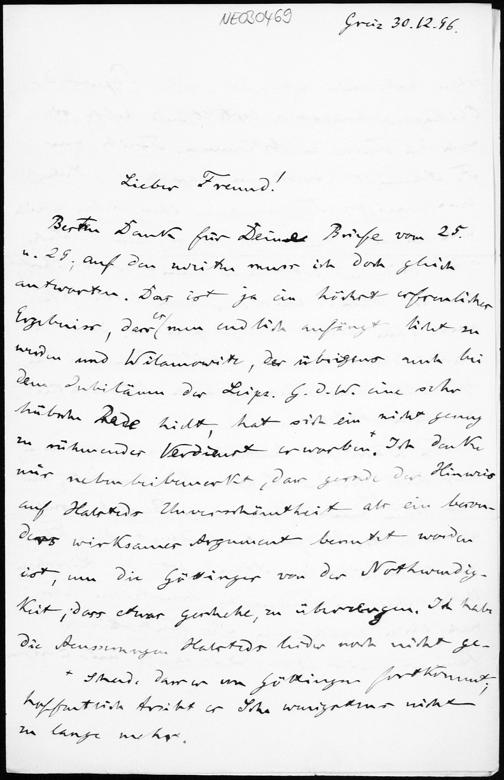 NE030469
Graz 30.12.96.
Lieber Freund!
Besten Dank für Deine Briefe vom 25.
u. 29; auf den zweiten muss ich doch gleich
antworten. Das ist ja ein höchst erfreuliches
Ergebniss, dass es nun endlich anfängt licht zu
werden und Wilamowitz, der übrigens auch bei
dem Jubiläum der Leipz. G. d. W. eine sehr
hübsche Rede hielt, hat sich ein nicht genug
zu rühmendes Verdienst erworben+. Ich denke
mir nebenbeibemerkt, dass gerade der Hinweis
auf Halsteds Unverschämtheit als ein beson-
ders wirksames Argument benutzt worden
ist, um die Göttinger von der Nothwendig-
keit, dass etwas geschehe, zu überzeugen. Ich habe
die Aeusserungen Halsteds leider noch nicht ge-
+ Schade dass er von Göttingen fortkommt;
hoffentlich er Ihr wenigstens nicht
zu lange mehr.